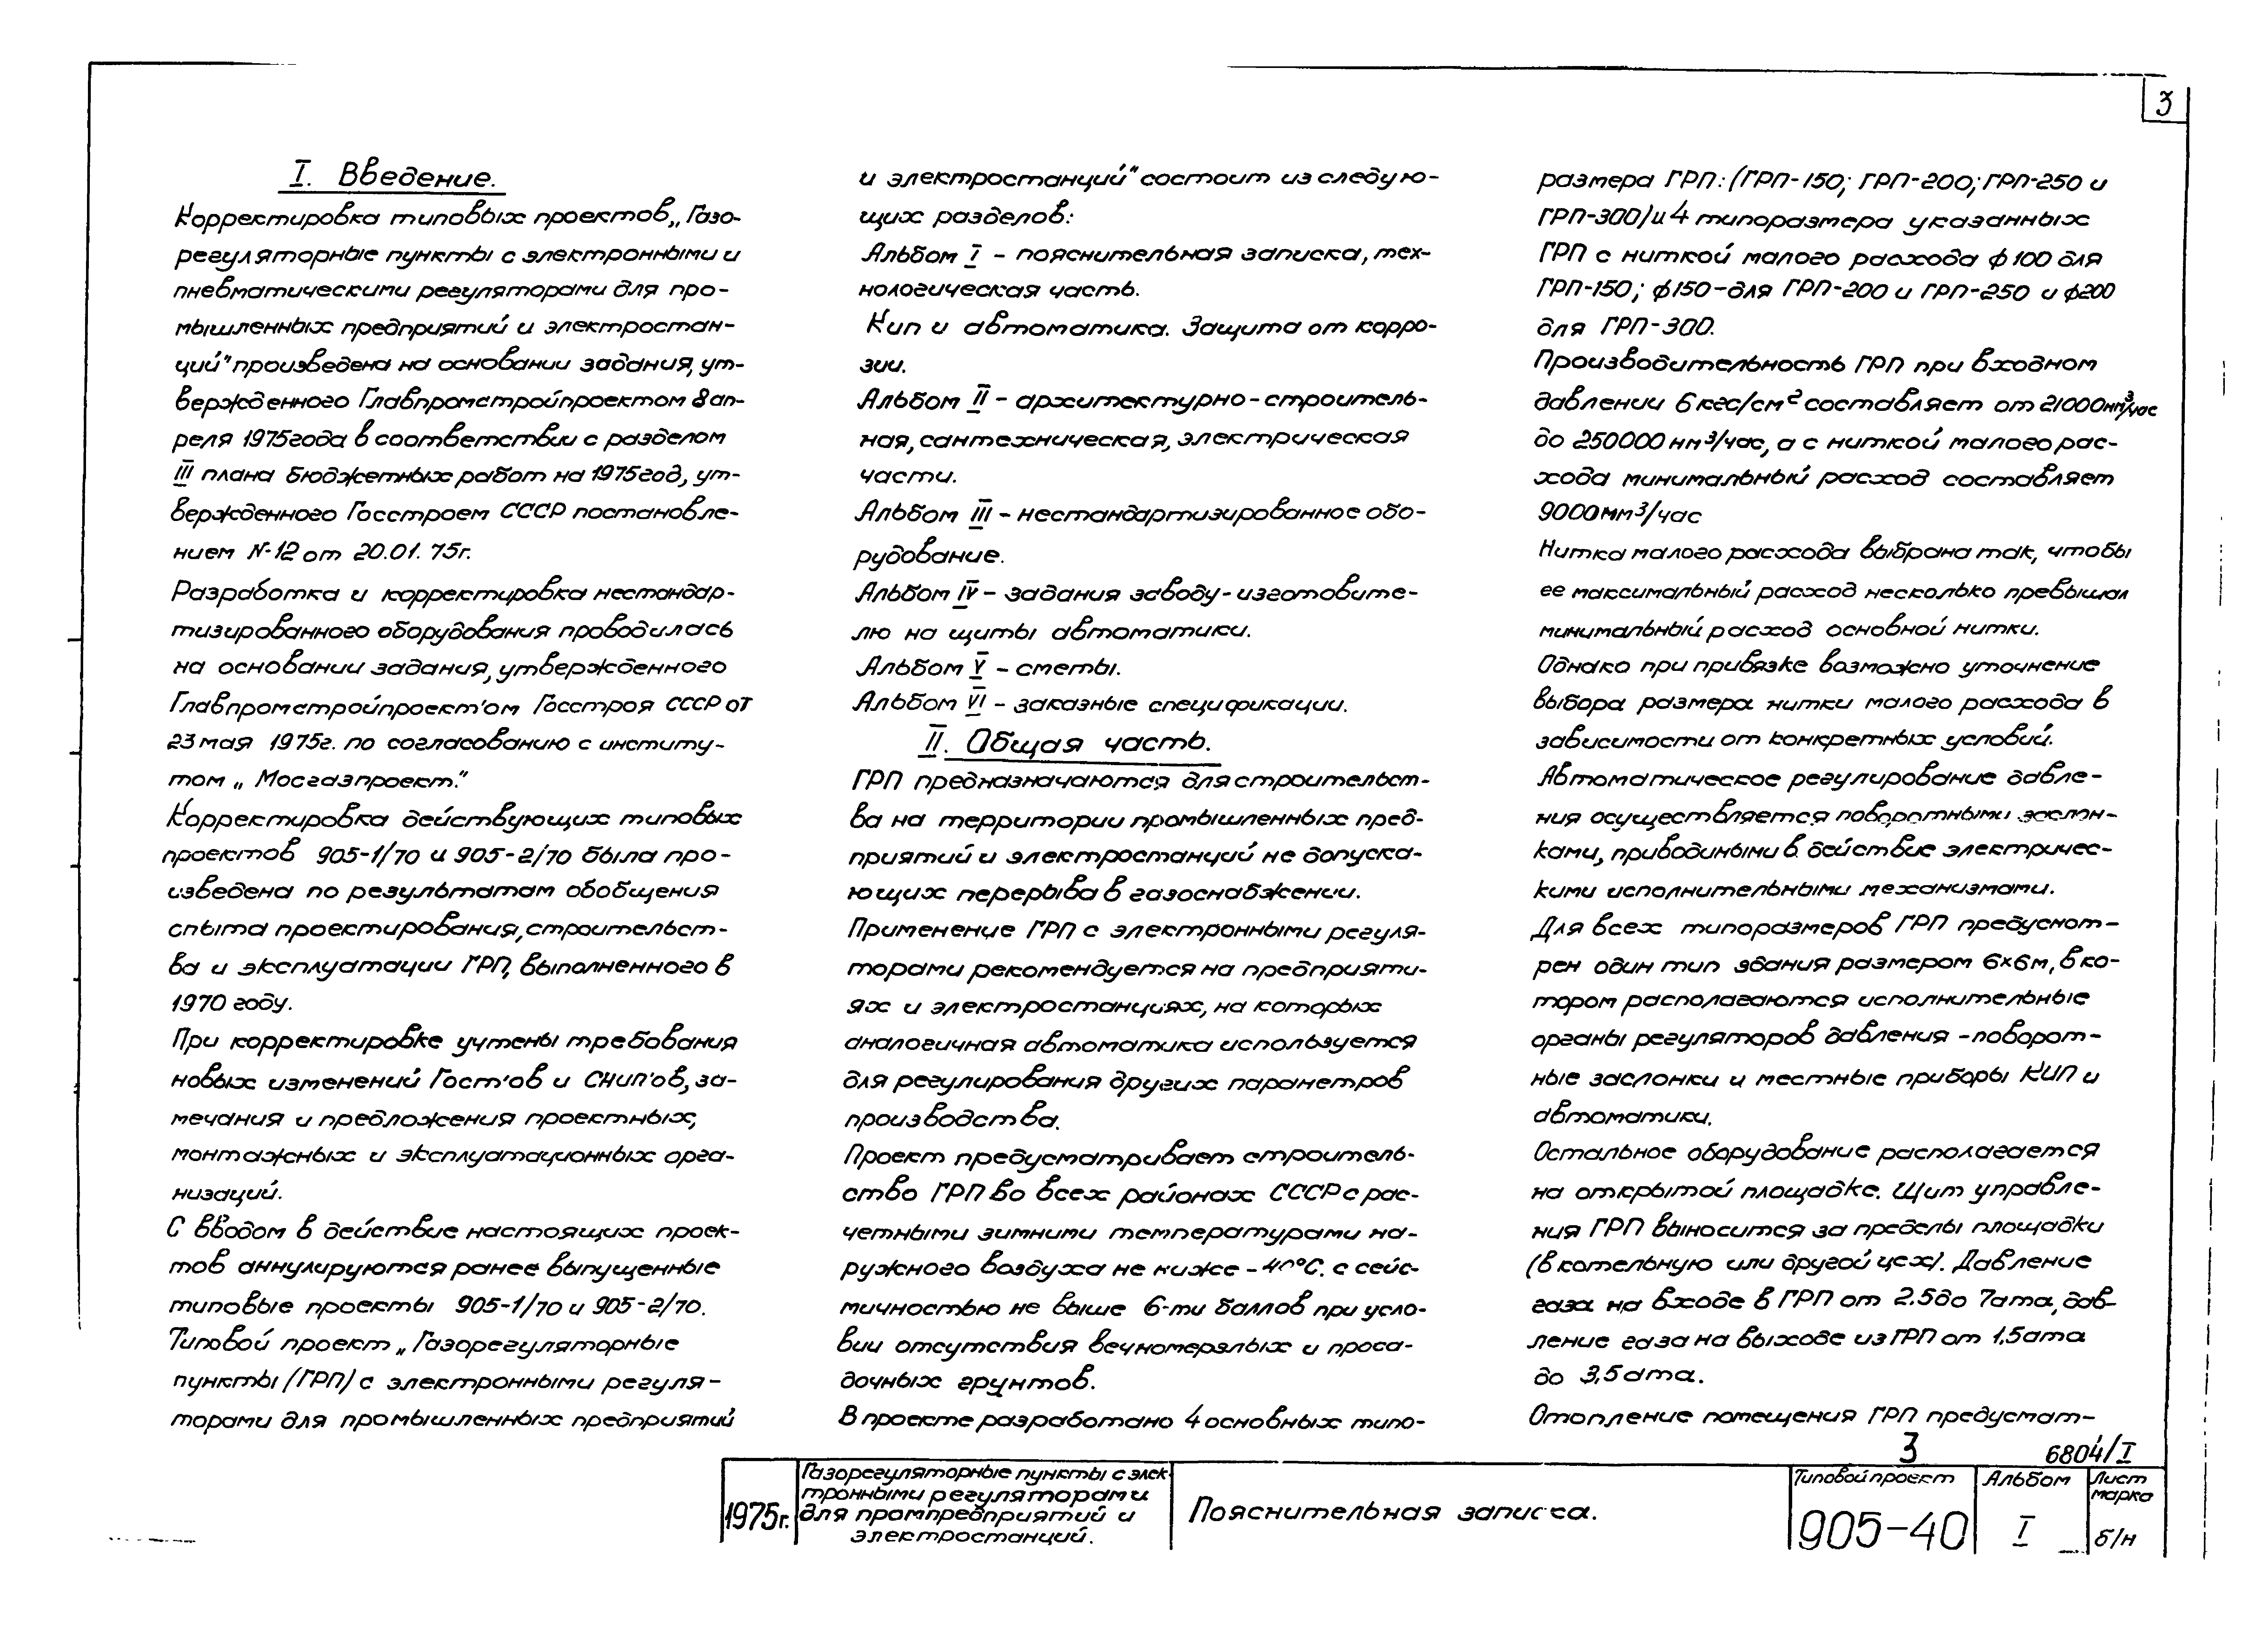 3
I. Введение.
Корректировка типовых проектов „Газо-
регуляторные пункты с электронными и
пневматическими регуляторами для про-
мышленных предприятий и электростан-
ций" произведена на основании задания, ут-
вержденного Главпромстройпроектом 8 ап-
реля 1975года в соответствии с разделом
III плана бюджетных работ на 1975год, ут-
вержденного Госстроем СССР постановле-
нием N-12 от 20.01.75г.
Разработка и корректировка нестандар-
тизированного оборудования проводилась
на основании задания, утвержденного
Главпромстройпроект'ом Госстроя СССР от
23 мая 1975г. по согласованию с институ-
том „Мосгазпроект."
Корректировка действующих типовых
проектов 905-1/70 и 905-2/70 была про-
изведена по результатам обобщения
опыта проектирования, строительст-
ва и эксплуатации ГРП, выполненного в
1970 году.
При корректировке учтены требования
новых изменений Гост'ов и СНиП'ов, за-
мечания и предложения проектных,
монтажных и эксплуатационных орга-
низаций.
С вводом в действие настоящих проек-
тов аннулируются ранее выпущенные
типовые проекты 905-1/70 и 905-2/70.
Типовой проект „Газорегуляторные
пункты (ГРП) с электронными регуля-
торами для промышленных предприятий
и электростанций" состоит из следую-
щих разделов:
Альбом I - пояснительная записка, тех-
нологическая часть.
Кип и автоматика. Защита от корро-
зии.
Альбом II - архитектурно-строитель-
ная, сантехническая, электрическая
части.
Альбом III - нестандартизированное обо-
рудование.
Альбом IV - задания заводу-изготовите-
лю на щиты автоматики.
Альбом V - сметы.
Альбом VI - заказные спецификации.
II. Общая часть.
ГРП предназначаются для строительст-
ва на территории промышленных пред-
приятий и электростанций не допуска-
ющих перерыва в газоснабжении.
Применение ГРП с электронными регуля-
торами рекомендуется на предприяти-
ях и электростанциях, на которых
аналогичная автоматика используется
для регулирования других параметров
производства.
Проект предусматривает строитель-
ство ГРП во всех районах СССР с рас-
четными зимними температурами на-
ружного воздуха не ниже -40°С. с сейс-
мичностью не выше 6-ти баллов при усло-
вии отсутствия вечномерзлых и проса-
дочных грунтов.
В проекте разработано 4 основных типо-
размера ГРП: (ГРП-150; ГРП-200; ГРП-250 и
ГРП-300) и 4 типоразмера указанных
ГРП с ниткой малого расхода ф 100 для
ГРП-150; ф150-для ГРП-200 и ГРП-250 и ф200
для ГРП-300.
Производительность ГРП при входном
давлении 6 кгс/см² составляет от 21000 нм³/час
до 250000 нм³/час, а с ниткой малого рас-
хода минимальный расход составляет
9000 мм³/час
Нитка малого расхода выбрана так, чтобы
ее максимальный расход несколько превышал
минимальный расход основной нитки.
Однако при привязке возможно уточнение
выбора размера нитки малого расхода в
зависимости от конкретных условий.
Автоматическое регулирование давле-
ния осуществляется поворотными заслон-
ками, приводиными в действие электричес-
кими исполнительными механизмами.
Для всех типоразмеров ГРП предусмот-
рен один тип здания размером 6×6м, в ко-
тором располагаются исполнительные
органы регуляторов давления - поворот-
ные заслонки и местные приборы КИП и
автоматики.
Остальное оборудование располагается
на открытой площадке. Щит управле-
ния ГРП выносится за пределы площадки
(в котельную или другой цех). Давление
газа на входе в ГРП от 2.5 до 7ата, дав-
ление газа на выходе из ГРП от 1.5ата
до 3,5ата.
Отопление помещения ГРП предусмат-
3
6804/I
1975г.
Газорегуляторные пункты с элек
тронными регуляторами
для промпредприятий и
электростанций.
Пояснительная записка.
Типовой проект
905-40
Альбом
I
Лист
марка
б/н